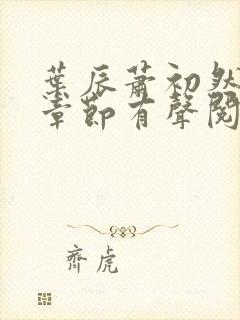 葉辰蕭初然
章節有聲閱
齊虎